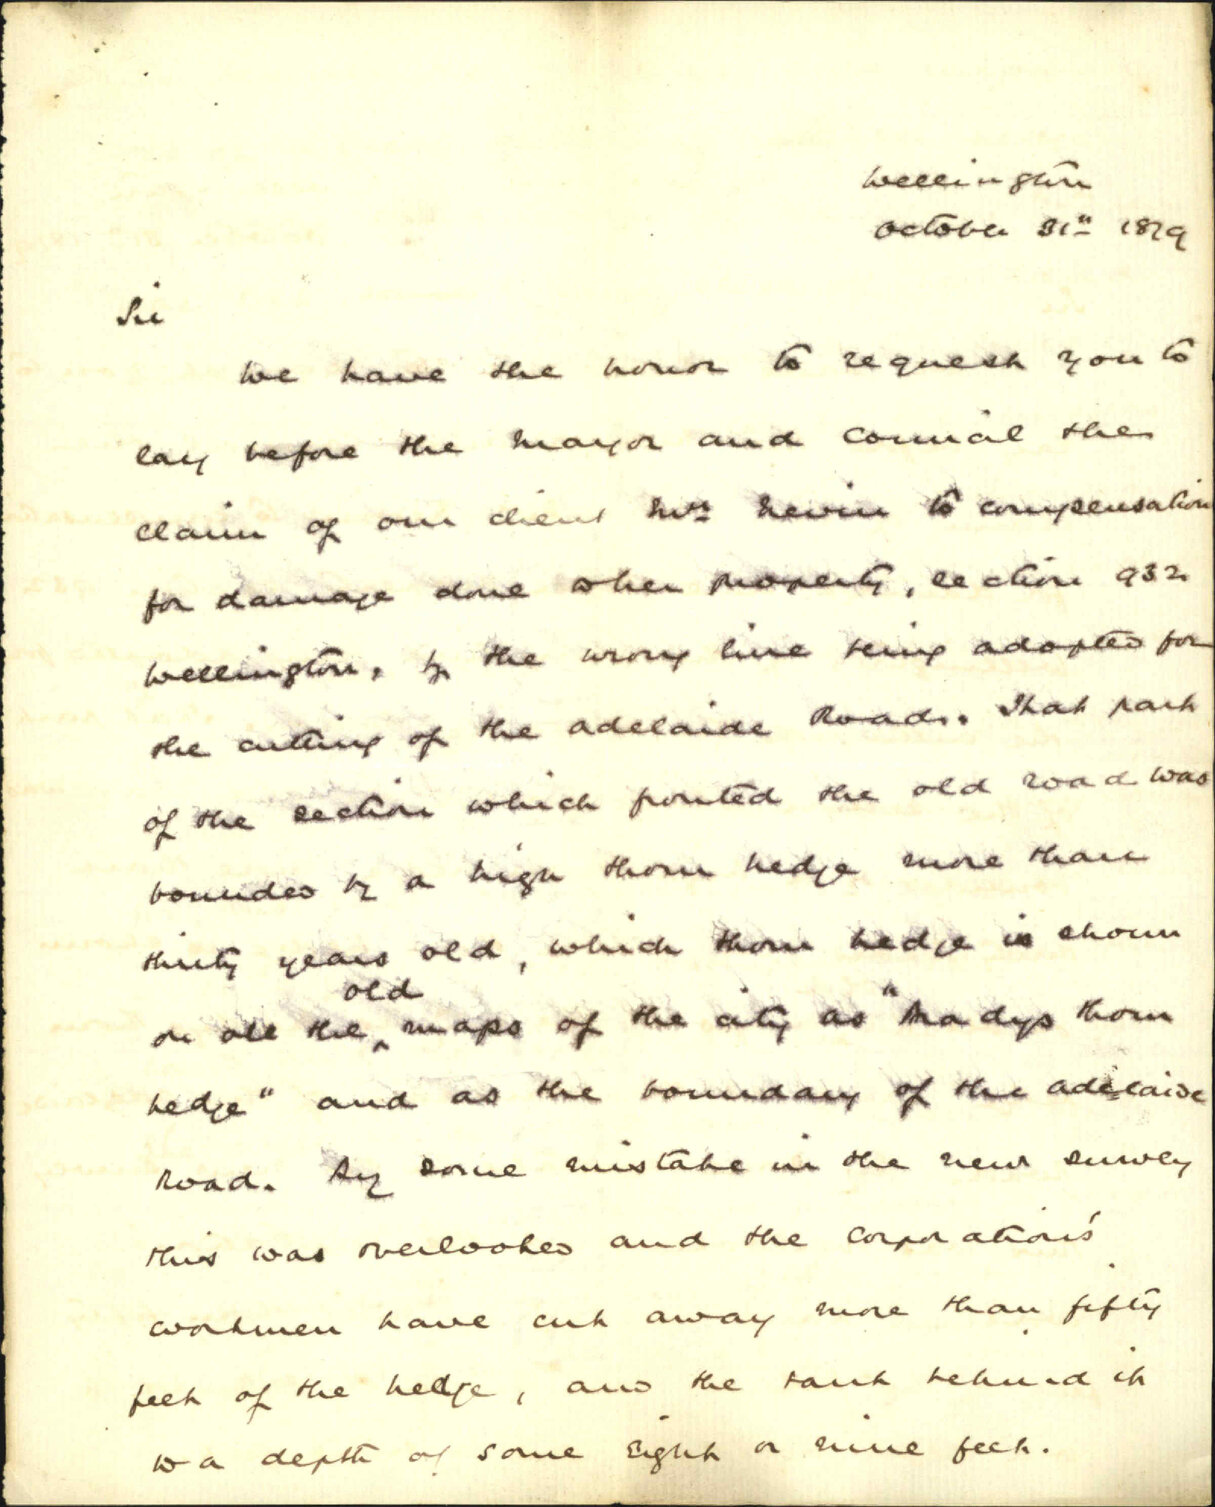 Wellington
October 31st 1879
Sir
We have the honor to request you to
lay before the Mayor and Council the
claim of our client Mrs Nevin to compensation
for damage done to her property, section 932
Wellington, by the wrong line being adopted for
the cutting of the Adelaide Road. That part
of the section which fronted the old road was
bounded by a high thorn hedge more than
thirty years old, which thorn hedge is shown
old
on all the ^ maps of the city as " thorn
hedge" and as the boundary of the Adelaide
Road. By some mistake in the new survey
this was overlooked and the Corporation's
workmen have cut away more than fifty
feet of the hedge, and the bank behind it
to a depth of some eight or nine feet.